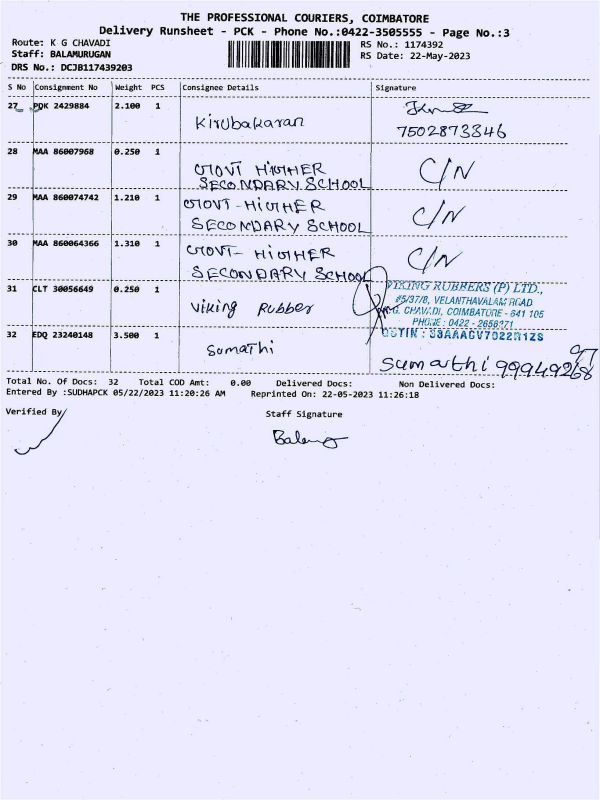 THE PROFESSIONAL COURIERS, COIMBATORE
Delivery Runsheet - PCK - Phone No.:0422-3505555 - Page No.:3
Route: K G CHAVADI
Staff: BALAMURUGAN
DRS No.: DCJB117439203
RS No.: 1174392
RS Date: 22-May-2023
S No Consignment No Weight PCS Consignee Details Signature
27 PDK 2429884 2.100 1 Kirubakaran
7502873346
28 MAA 86007968 0.250 1 GOVT HIGHER
SECONDARY SCHOOL C/N
29 MAA 860074742 1.210 1 GOVT-HIGHER
SECONDARY SCHOOL C/N
30 MAA 860064366 1.310 1 GOVT- HIGHER
SECONDARY SCHOOL C/N
31 CLT 30056649 0.250 1 Viking Rubber
VIKING RUBBERS (P) LTD.,
#5/37/8, VELANTHAVALAM ROAD
K.G. CHAVADI, COIMBATORE - 641 105
PHONE : 0422 -
GSTIN :
32 EDQ 23240148 3.500 1 Sumathi
Sumathi
Total No. Of Docs: 32 Total COD Amt: 0.00 Delivered Docs: Non Delivered Docs:
Entered By :SUDHAPCK 05/22/2023 11:20:26 AM Reprinted On: 22-05-2023 11:26:18
Verified By
Staff Signature